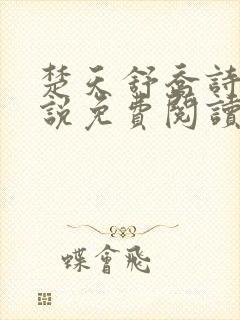 楚天舒喬詩
說免費閱讀
蝶會飛